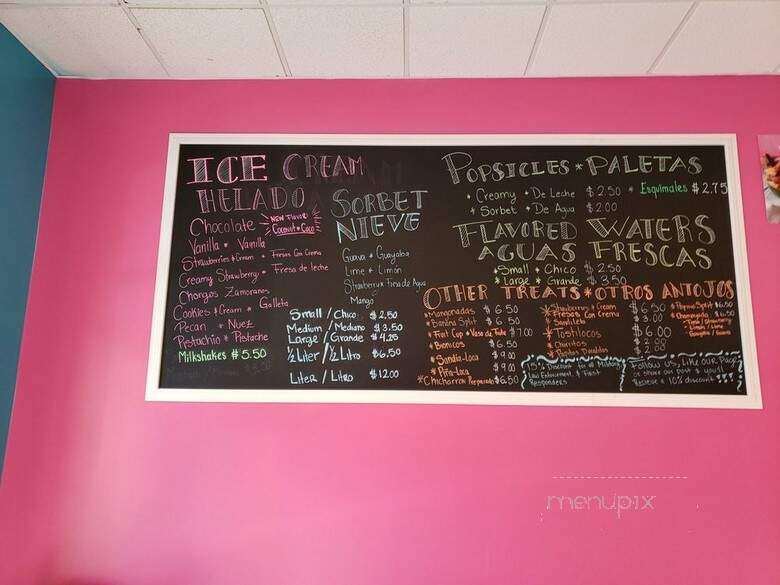 ICE CREAM
HELADO
Chocolate
NEW FLAVOR
Coconut * Coco
Vanilla * Vainilla
Strawberries & Cream * Fresas Con Crema
Creamy Strawberry * Fresa de leche
Chongos Zamoranos
Cookies & Cream * Galleta
Pecan * Nuez
Pistachio * Pistache
Milkshakes $5.50
SORBET
NIEVE
Guava * Guayaba
Lime * Limón
Strawberry * Fresa de Agua
Mango
Small / Chico $2.50
Medium / Mediano $3.50
Large / Grande $4.25
1/2 Liter / 1/2 Litro $6.50
Liter / Litro $12.00
POPSICLES * PALETAS
* Creamy * De Leche $2.50
* Sorbet * De Agua $2.00
* Esquimales $2.75
FLAVORED WATERS
AGUAS FRESCAS
* Small * Chico $2.50
* Large * Grande $3.50
OTHER TREATS * OTROS ANTOJOS
* Mangonadas $6.50
* Banana Split $6.50
* Fruit Cup * Vaso de Fruta $7.00
* Bionicos $6.50
* Sandia-Loca $9.00
* Piña-Loca $9.00
* Chicharron Preparado $6.50
* Strawberry & Cream $6.50
Fresas Con Crema
* Sandileta $3.00
* Tostilocos $6.00
* Churritos
* Papitas Doraditas
$6.50
* Chamoyada $6.50
15% Discount for all Military,
Law Enforcement, & First
Responders
Follow us, Like our Page
or share our post & you'll
Receive a 10% discount!!!
menupix